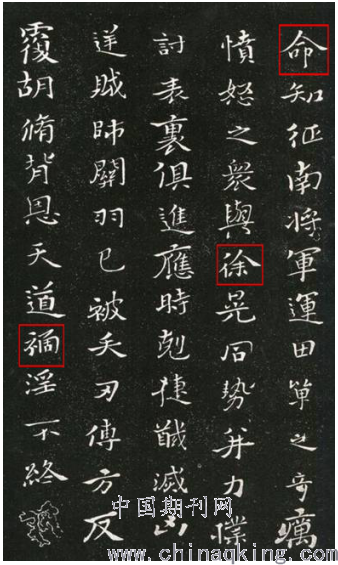 命知征南將軍運田單之奇癘
憤怒之衆與徐晃同勢并力撲
討表裏俱進應時剋捷馘滅凶
逆賊帥關羽已被矢刃傅方反
覆胡脩背恩天道禍淫不終
中国期刊网
www.chinaqking.com